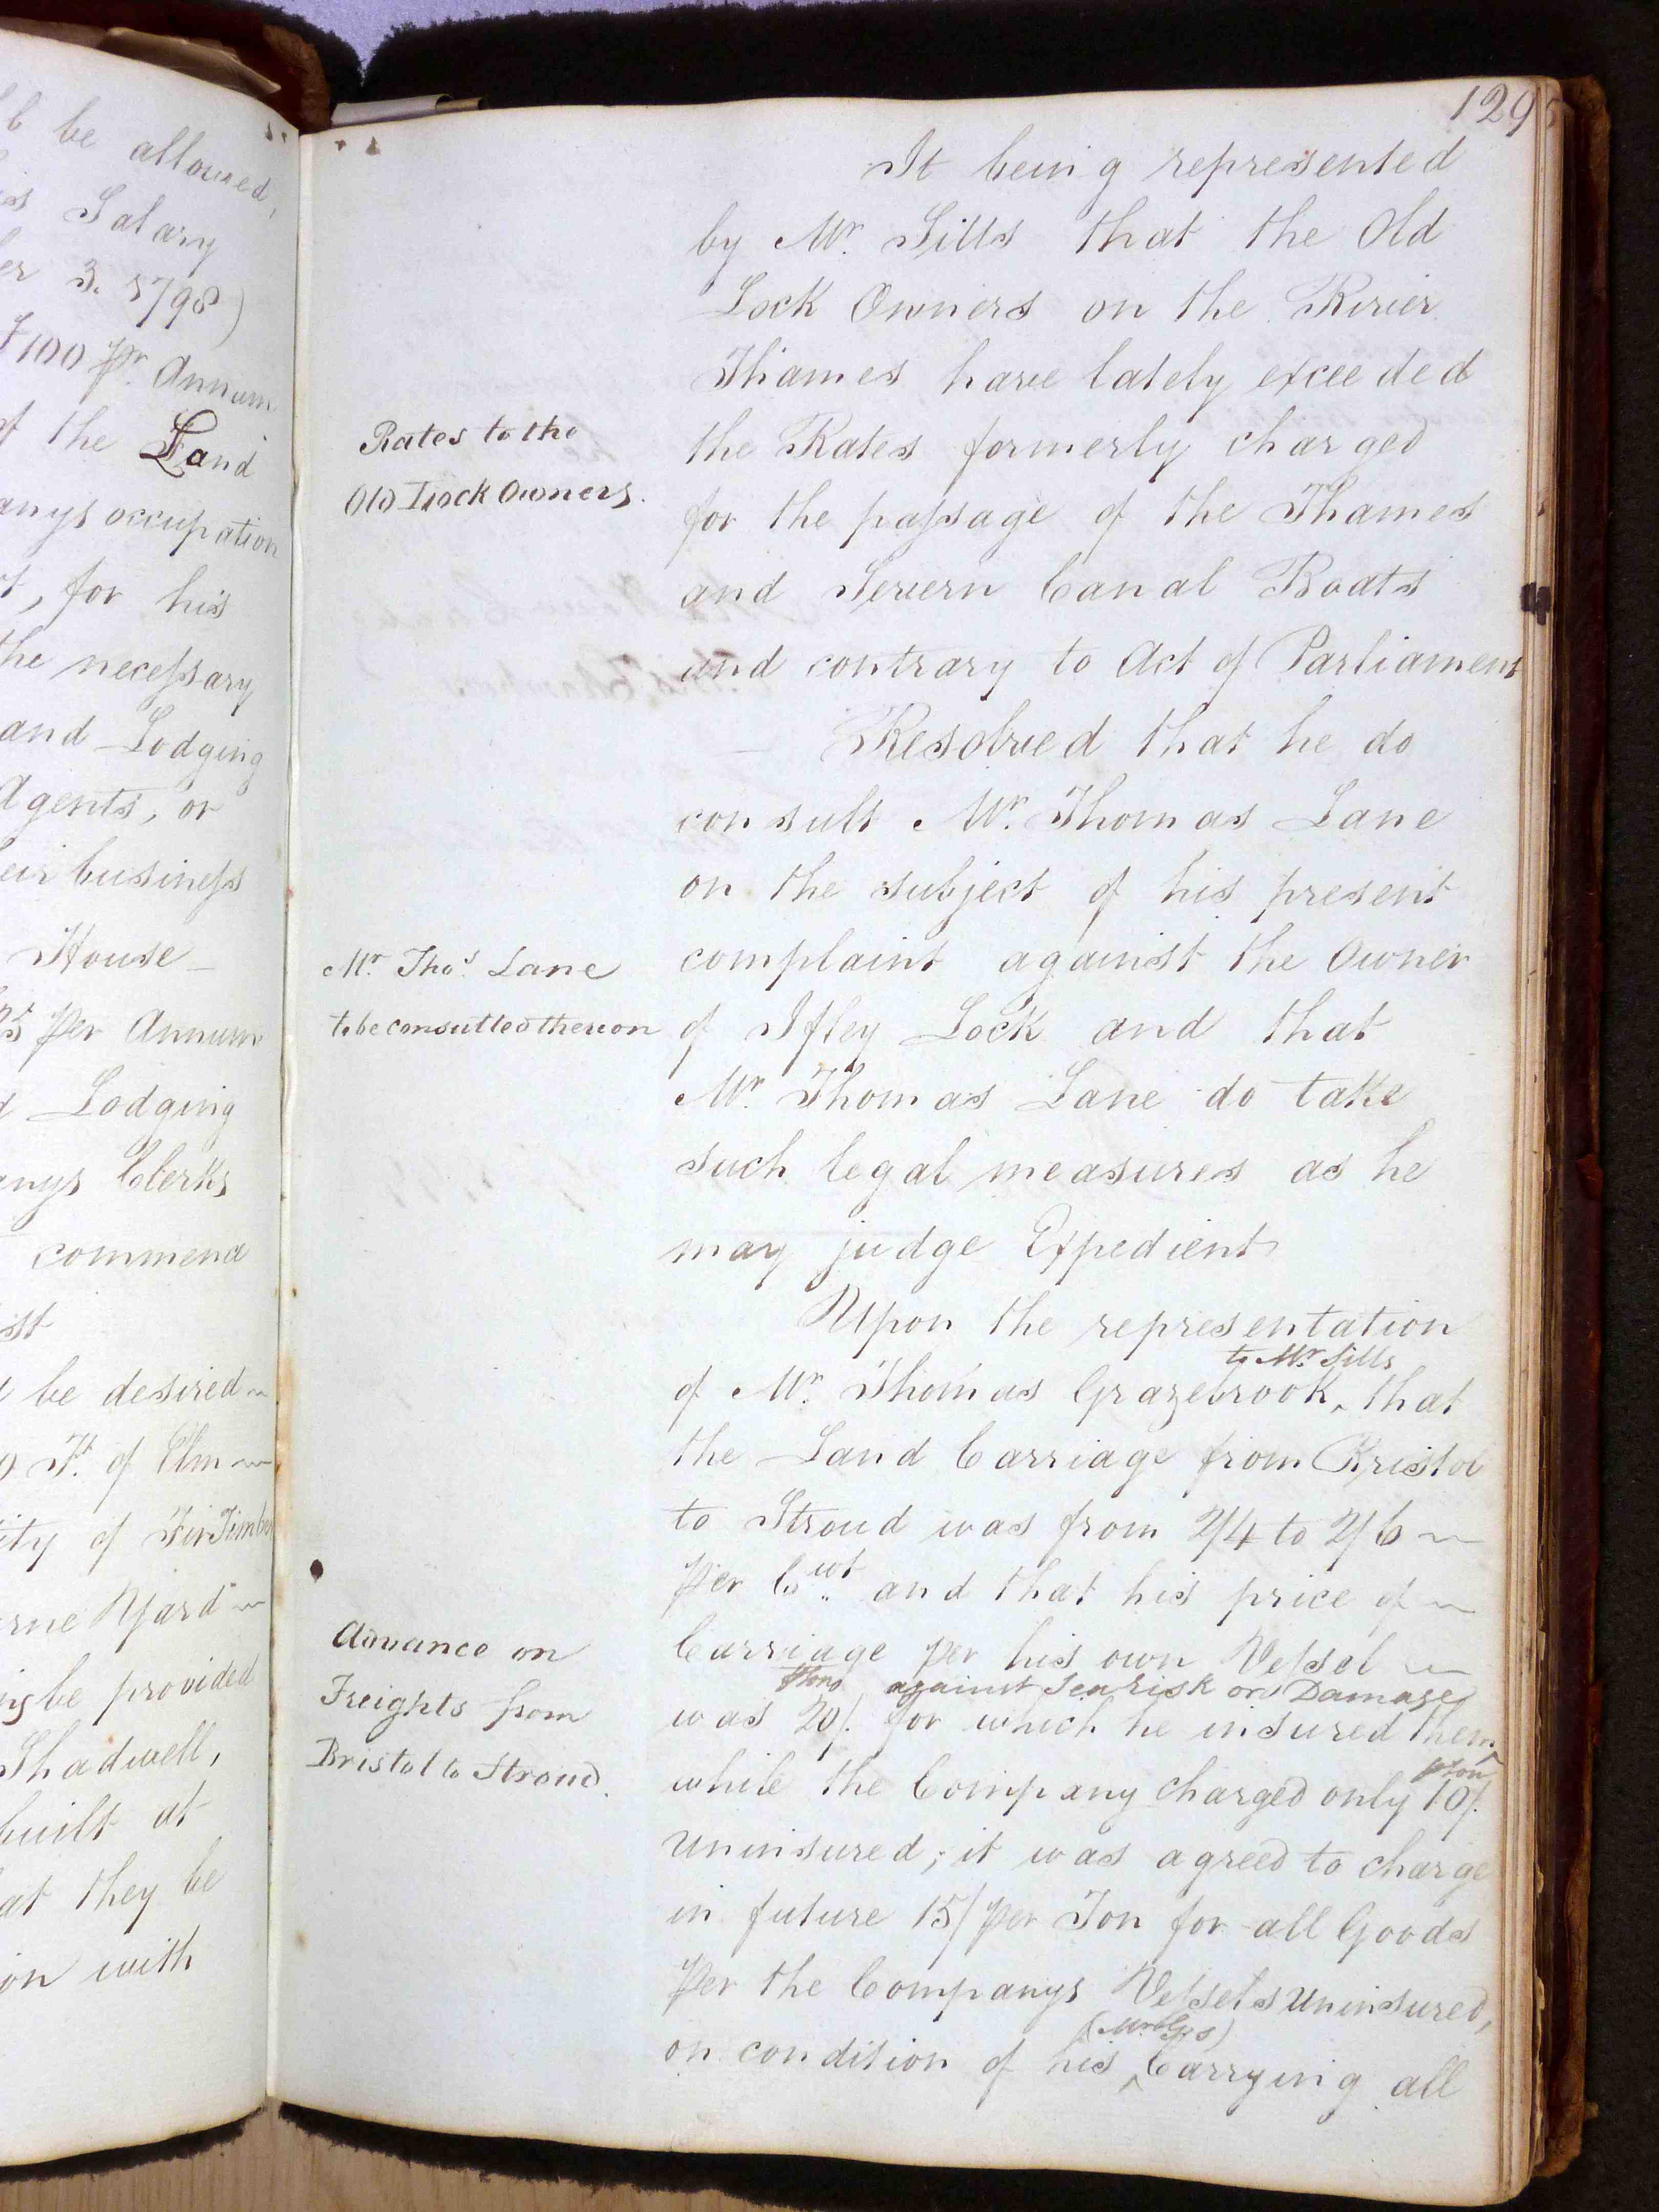 b be allowed,
is Salary
er 3. 1798)
£100 Pr. Annum
of the Land
anys occupation
t, for his
the necessary
and Lodging
Agents, or
eir business
House
Per Annum
Lodging
anys Clerks
commend
st
be desired
Ft. of Elm
ity of Fir Timber
rne Yard
ing be provided
Shadwell,
built at
at they be
on with
129
It being represented
by Mr. Sills that the Old
Lock Owners on the River
Thames have lately exceeded
Rates to the
Old Lock Owners.
the Rates formerly charged
for the passage of the Thames
and Severn Canal Boats
and contrary to Act of Parliament
Resolved that he do
consult Mr. Thomas Lane
on the subject of his present
Mr. Thos. Lane
to be consulted thereon
complaint against the Owner
of Ifley Lock and that
Mr. Thomas Lane do take
such legal measures as he
may judge Expedient
Upon the representation
to Mr. Sills
of Mr. Thomas Grazebrook, that
the Land Carriage from Bristol
to Stroud was from 2/4 to 2/6
Per Cwt. and that his price of
Advance on
Freights from
Bristol to Stroud.
Carriage per his own Vessel
against Sea risk or Damage
was 20/. for which he insured them
pr ton
while the Company charged only 10/.
uninsured; it was agreed to charge
in future 15/ Per Ton for all Goods
Per the Companys Vessels uninsured,
(Mr. G's)
on condition of his Carrying all